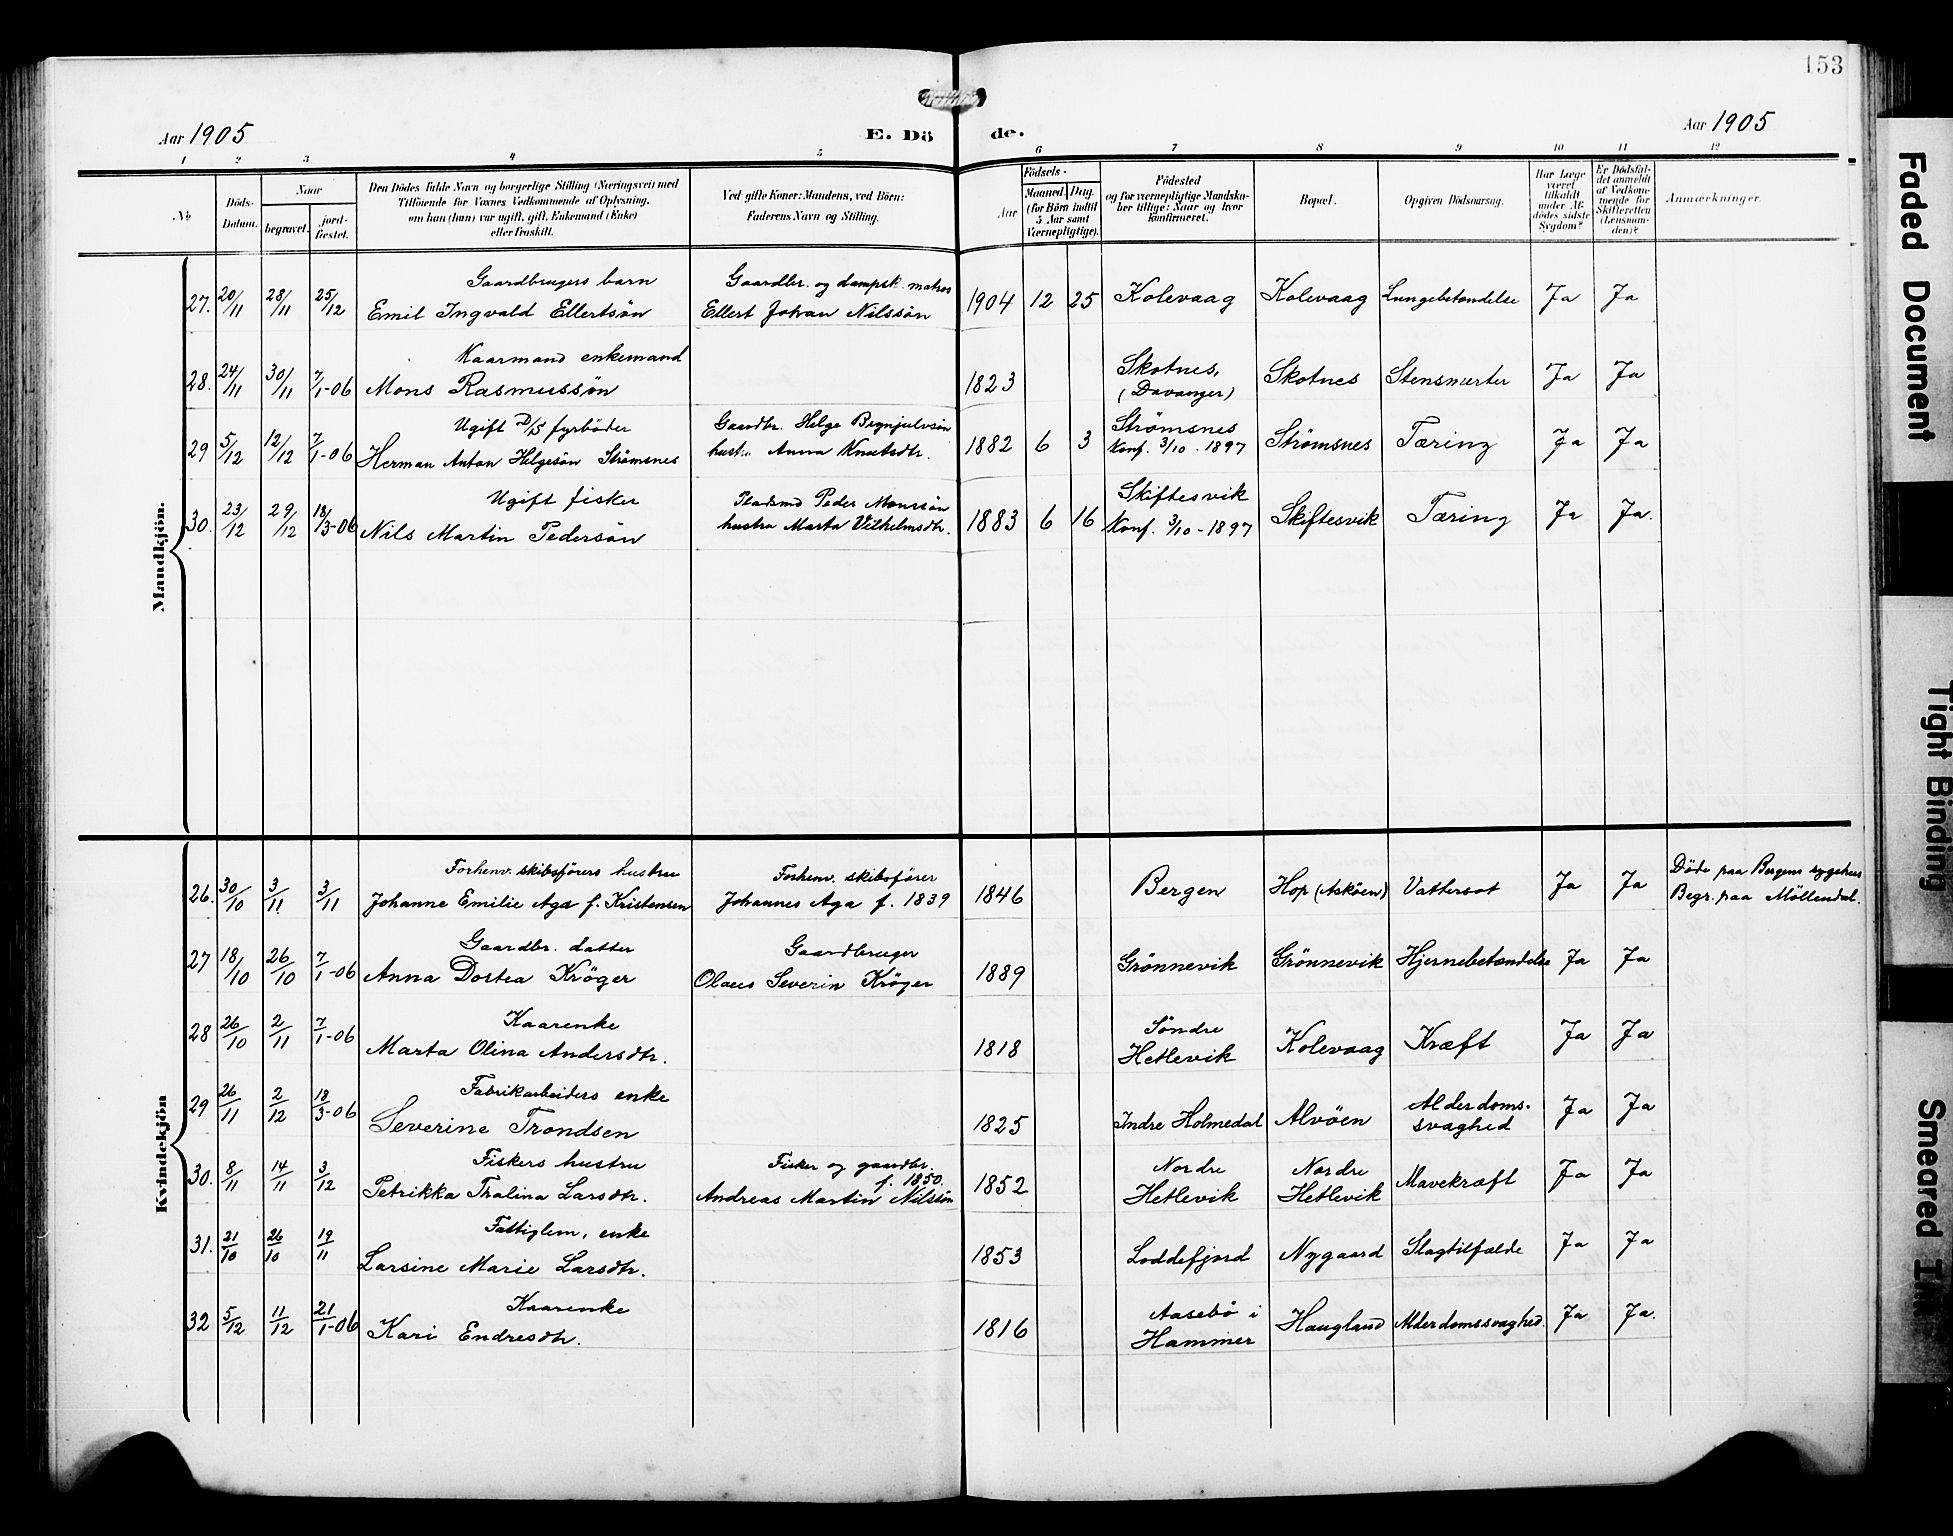 153
Aar 1905
E. Dö de.
Aar 1905
1 2 3 4 5 6 7 8 9 10 11 12
№
Döds-
Datum.
Naar
begravet.
jord-
fæstet.
Den Dödes fulde Navn og borgerlige Stilling (Næringsvei) med
Tilföiende for Voxnes Vedkommende af Oplysning,
om han (hun) var ugift, gift, Enkemand (Enke)
eller fraskilt.
Ved gifte Koner: Mandens, ved Börn:
Faderens Navn og Stilling.
Födsels-
Aar
Maaned. Dag.
(for Börn indtil
5 Aar samt
Værnepligtige).
Födested
og for værnepligtige Mandska-
ber tillige: Naar og hvor
konfirmeret.
Bopæl.
Opgiven Dödsaarsag.
Har Læge
været
tilkaldt
under Af-
dödes sidste
Sygdom?
Er Dödsfal-
det anmeldt
af Vedkom-
mende for
Skifteretten
(Lensman-
den)?
Anmærkninger.
Mandkjön.
Gaardbrugers barn Gaardbr. og dampsk. matros
27. 20/11 28/11 25/12 Emil Ingvald Ellertsön Ellert Johan Nilssön 1904 12 25 Kolevaag Kolevaag Lungebetændelse Ja Ja
Kaarmand enkemand Skotnes,
28. 24/11 30/11 7/1-06 Mons Rasmussön 1823 (Davanger) Skotnes Stensmerter Ja Ja
Ugift D/S fyrböder Gaardbr. Helge Brynjulvsön Strømsnes
29 5/12 12/12 7/1-06 Herman Anton Helgesön Strømsnes hustru Anna Knutsdtr. 1882 6 3 Konf. 3/10 - 1897 Strømsnes Tæring Ja Ja
Ugift fisker Pladsmd Peder Monssön Skiftesvik
30. 23/12 29/12 18/3-06 Nils Martin Pedersön hustru Marta Vilhelmsdtr. 1883 6 16 Konf. 3/10 - 1897 Skiftesvik Tæring Ja Ja.
Kvindekjön
Forhenv. skibsførers hustru Forhenv. skibsfører Döde paa Bergens sygehus
26. 30/10 3/11 3/11 Johanne Emilie Aga f. Kristensen Johannes Aga f. 1839 1846 Bergen Hop (Asköen) Vattersot Ja Ja Begr. paa Möllendal.
Gaardbr. datter Gaardbruger
27 18/10 26/10 7/1-06 Anna Dortea Kröger Olaus Severin Kröger 1889 Grönnevik Grönnevik Hjernebetændelse Ja Ja
Kaarenke Söndre
28 26/10 2/11 7/1-06 Marta Olina Andersdtr. 1818 Hetlevik Kolevaag Kræft Ja Ja
Fabrikarbeiders enke Alderdoms-
29 26/11 2/12 18/3-06 Severine Trondsen 1825 Indre Holmedal Alvöen svaghed Ja Ja
Fiskers hustru Fisker og gaardbr. f. 1850. Nordre Nordre
30. 8/11 14/11 3/12 Petrikka Thalina Larsdtr. Andreas Martin Nilssön 1852 Hetlevik Hetlevik Mavekræft Ja Ja
Fattiglem, enke
31. 21/10 26/10 19/11 Larsine Marie Larsdtr. 1853 Loddefjord Nygaard Slagtilfælde Ja Ja
Kaarenke Aasebö i
32 5/12 11/12 21/1-06 Kari Endresdtr. 1816 Hammer Haugland Alderdomssvaghed. Ja Ja.
Faded Document
Tight Binding
Smeared Ink